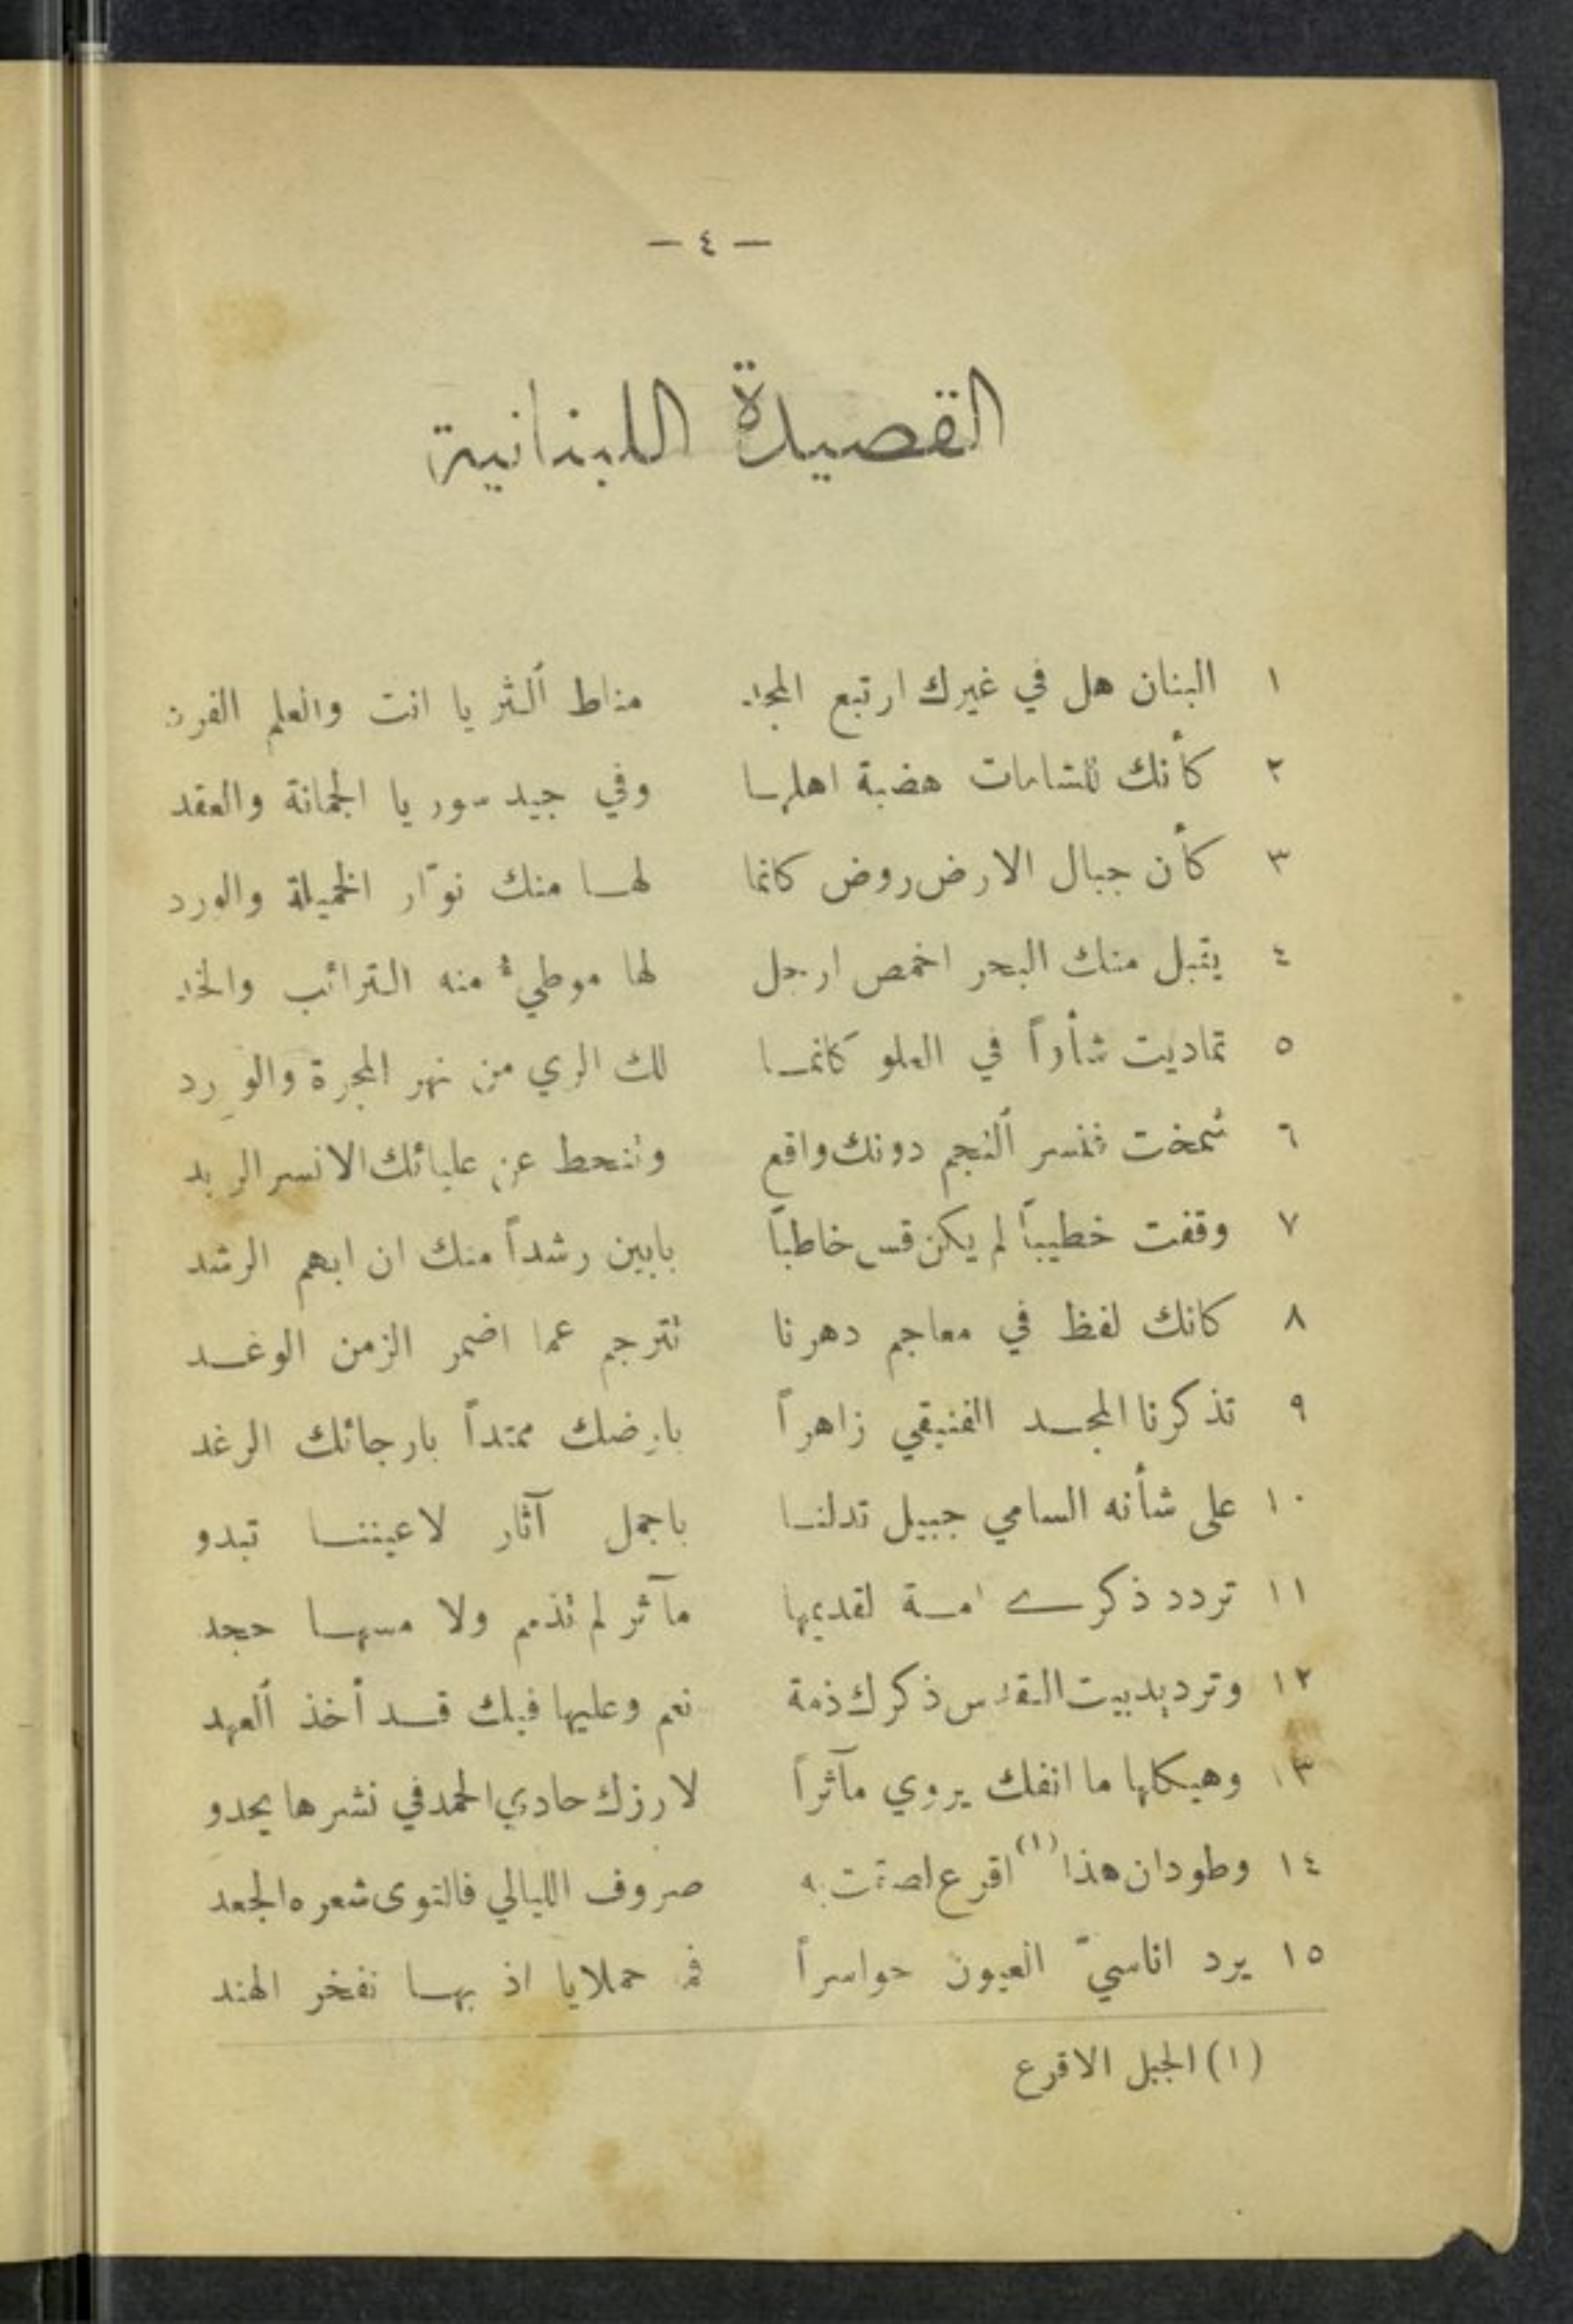 — ٤ —
القصيدة اللبنانية
١ البنان هل في غيرك ارتبع المجد مناط ٱلثريا انت والعلم الفرد
٢ كأنك للشامات هضبة اهلها وفي جيد سوريا الجمانة والعقد
٣ كأن جبال الارض روض كانما لها منك نوّار الخميلة والورد
٤ يقبل منك البحر اخمص ارجل لها موطيء منه الترائب والخد
٥ تماديت شأواً في العلو كانما لك الري من نهر المجرة والورد
٦ شمخت فنسر ٱلنجم دونك واقع وتنحط عن عليائك الانسر الربد
٧ وقفت خطيباً لم يكن قس خاطباً بابين رشداً منك ان ابهم الرشد
٨ كانك لفظ في معاجم دهرنا تترجم عما اضمر الزمن الوغد
٩ تذكرنا المجد الفنيقي زاهراً بارضك ممتداً بارجائك الرغد
١٠ على شأنه السامي جبيل تدلنا باجمل آثار لاعيننا تبدو
١١ تردد ذكرى امة لقديمها مآثر لم تذمم ولا مسها جحد
١٢ وترديد بيت القدس ذكرك ذمة نعم وعليها فيك قد أخذ ٱلعهد
١٣ وهيكلها ما انفك يروي مآثراً لارزك حادي الحمد في نشرها يحدو
١٤ وطودان هذا (١) اقرع به صروف الليالي فالتوى شعره الجعد
١٥ يرد اناسيّ العيون حواسراً حملايا اذ بها تفخر الهند
(١) الجبل الاقرع